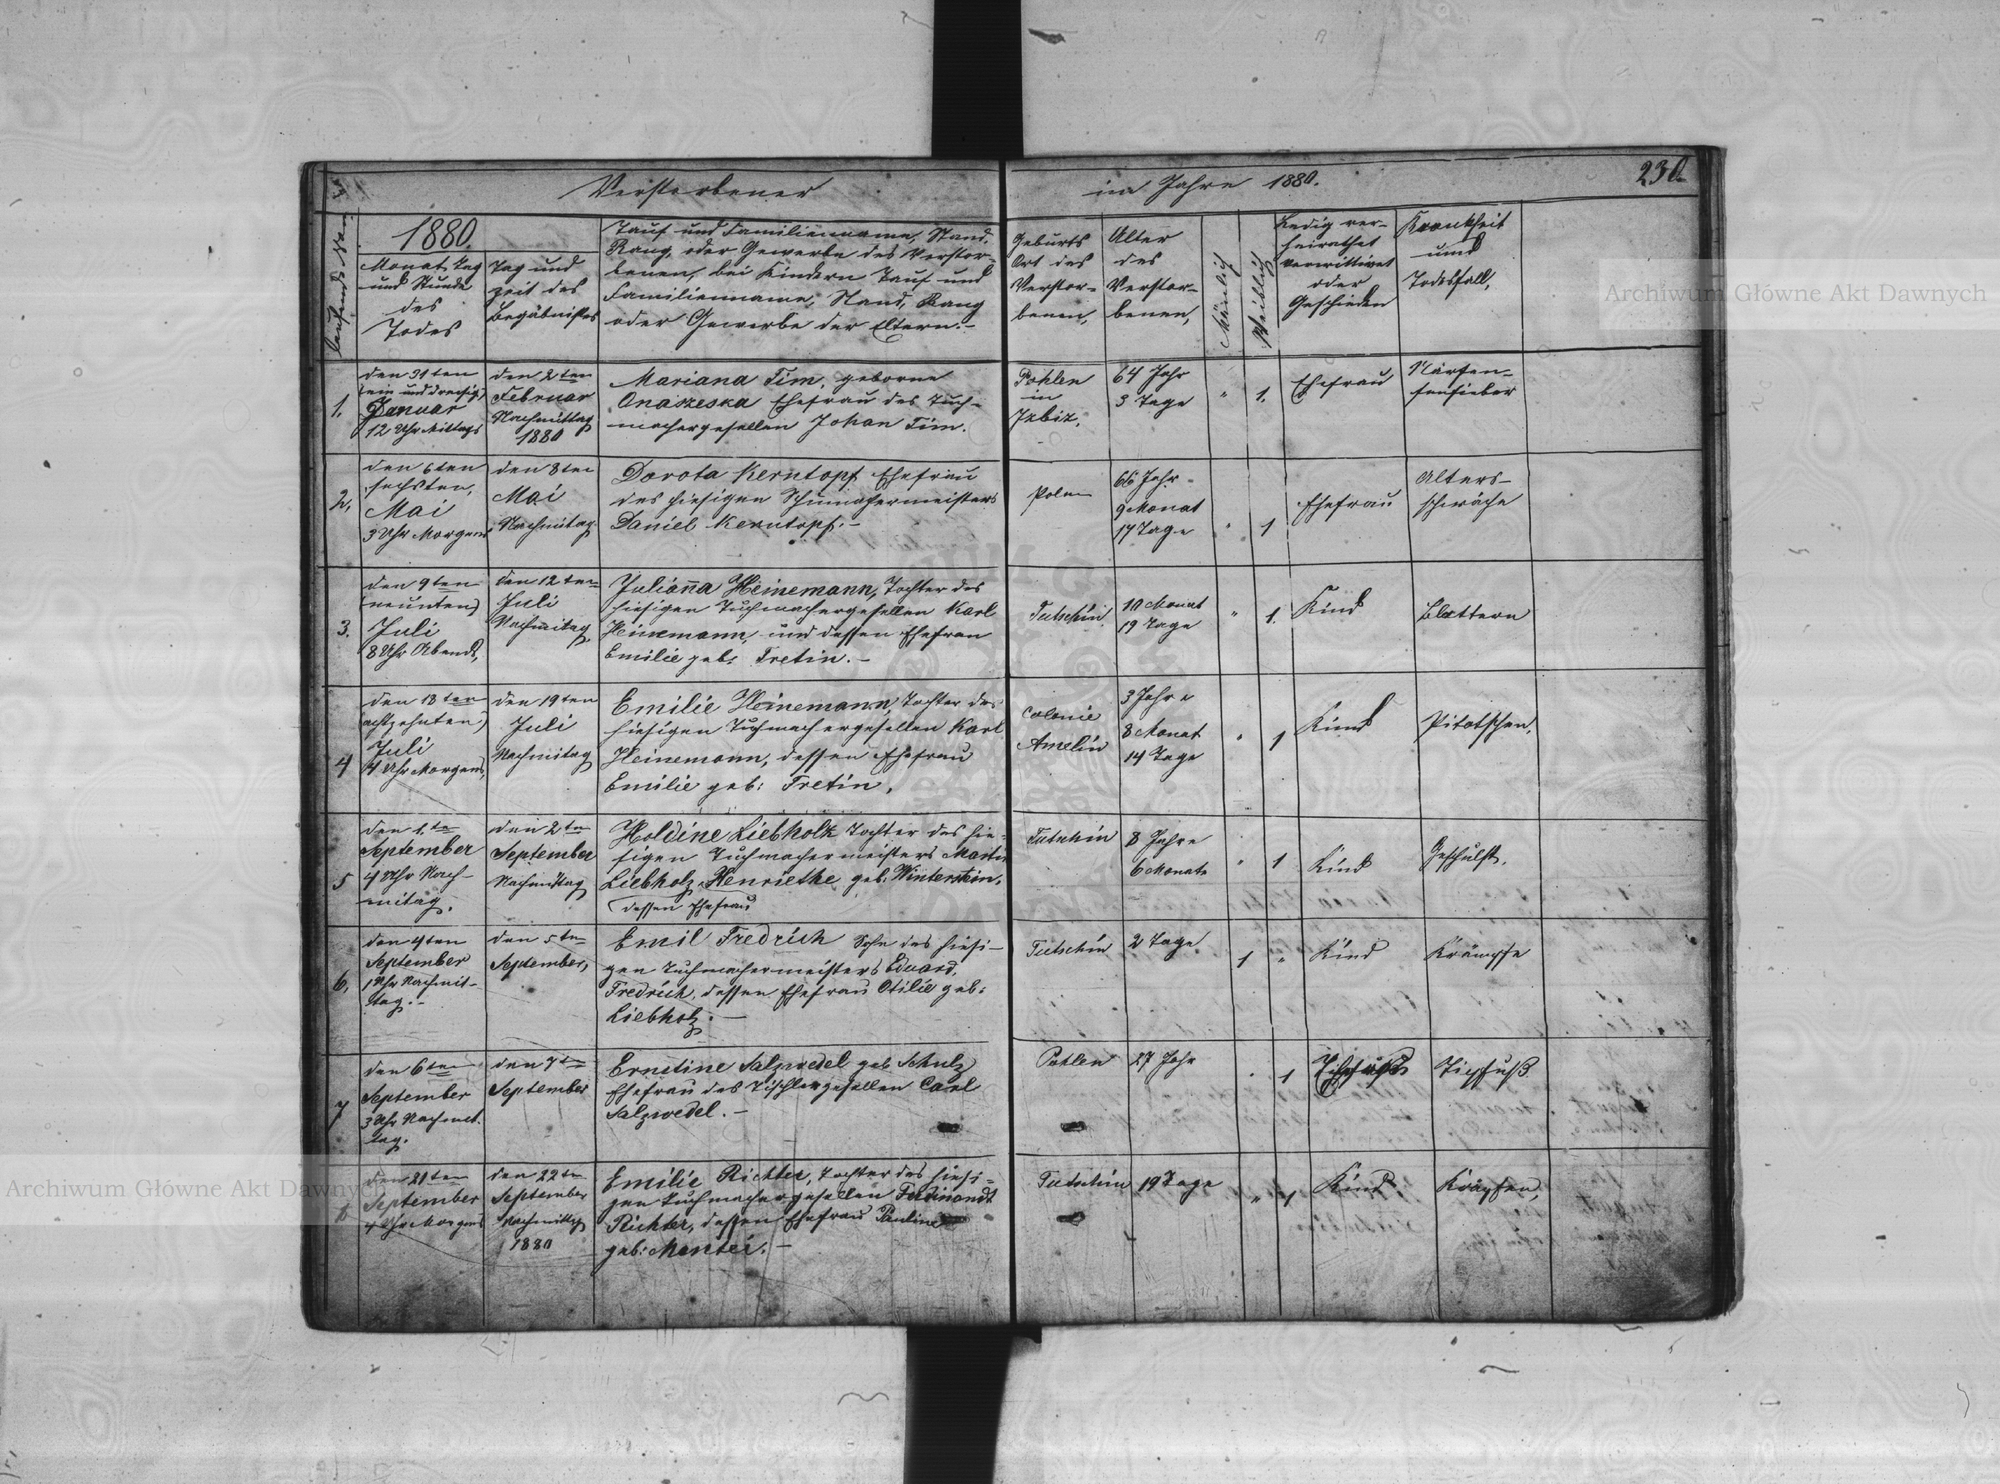 Verstorbener
im Jahre 1880.
230.
laufende Nro
1880.
Monat, Tag
und Stunde
des
Todes
Tag und
Zeit des
Begäbnißes
Tauf und Familienname, Stand,
Rang, oder Gewerbe des Verstor-
benen, bei Kindern Tauf und
Familienname, Stand, Rang
oder Gewerbe der Eltern.-
Geburts
Ort des
Verstor-
benen,
Alter
des
Verstor-
benen,
Mänlich
Weiblich
Ledig ver-
heirathet
verwittivet
oder
Geschieden
Krankheit
und
Todesfall,
1.
den 31 ten
(ein und dreisig)
Januar
12 Uhr Mittags
den 2 ten
Februar
Nachmittag
1880
Mariana Tim, geborne
Onaszeska Ehefrau des Tuch-
machergesellen Johan Tim.
Pohlen
in
Izbiz.
64 Jahr
3 Tage
" 1.
Ehefrau
fieber
2.
den 6 ten
sechsten,
Mai
3 Uhr Morgens
den 8 ten
Mai
Nachmitag.
Dorota Kerntopf Ehefrau
des hiesigen Schumachermeisters
Daniel Kerntopf.-
Polen
66 Jahr
9 Monat
17 Tage
" 1
Ehefrau
Alters-
schwäche
3.
den 9 ten
(neunten)
Juli
8 Uhr Abends,
den 12 ten
Juli
Nachmitag
Julianna Heinemann, Tochter des
hiesigen Tuchmachergesellen Karl
Heinemann, und dessen Ehefrau
Emilie geb: Tretin.-
Tutschin.
10 Monat
19 Tage
" 1.
Kind
Blattern
4
den 18 ten
(achtzehnten)
Juli
4 Uhr Morgens,
den 19 ten
Juli
Nachmitag
Emilie Heinemann, Tochter des
hiesigen Tuchmachergesellen Karl
Heinemann, dessen Ehefrau
Emilie geb: Tretin,
Colonie
Amelin
3 Jahre
8 Monat
14 Tage
" 1
Kind
5
den 1. ten
September
4 Uhr Nach-
mitag.
den 2 ten
September
Nachmittag
Holdine Liebholz Tochter des hie-
sigen Tuchmachermeisters Martin
Liebholz, Henriethe geb: Winterstein,
dessen Ehefrau
Tutschin
8 Jahre
6 Monate
" 1
Kind
Geschulst.
6.
den 4 ten
September
1 Uhr Nachmit-
tag.-
den 5 ten
September,
Emil Fredrich Sohn des hiesi-
gen Tuchmachermeisters Eduard,
Fredrich, dessen Ehefrau Otilie geb:
Liebholz.-
Tutschin
2 Tage
1 "
Kind
Krämpfe
7
den 6 ten
September
3 Uhr Nachmit.
tag.
den 7 ten
September
Ernstine Salzwedel geb Schulz
Ehefrau des Tischlergesellen Carl
Salzwedel.-
Pohlen
27 Jahr
" 1
8
den 21 ten
September
4 Uhr Morgens
den 22 ten
September
Nachmittag
1880
Emilie Richter, Tochter des hiesi-
gen Tuchmachergesellen Ferdinandt
Richter, dessen Ehefrau Pauline
geb: Mantei.-
Tutschin
19 Tage
" 1
Kind
Archiwum Główne Akt Dawnych
Archiwum Główne Akt Dawnych